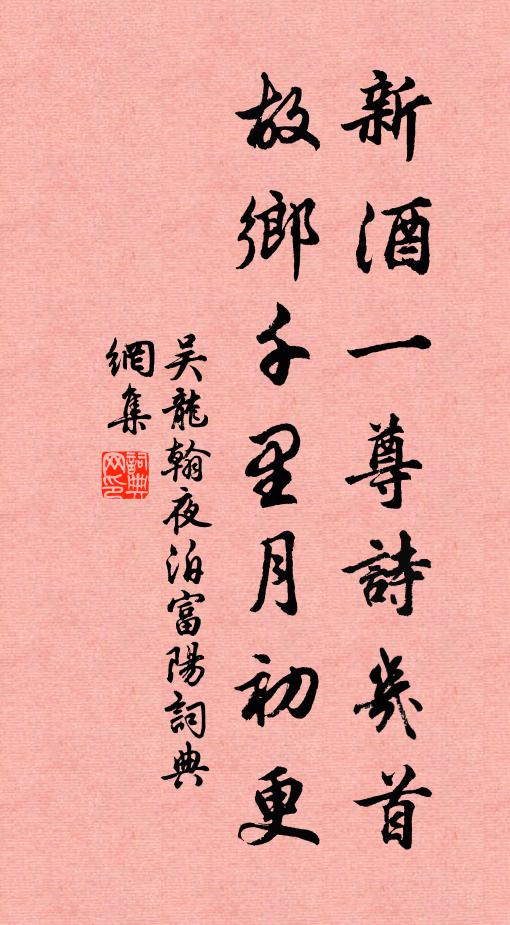 新酒一尊詩幾首
故鄉千里月初更
吴龍翰夜泊富陽詞典
網集
詞典
网印